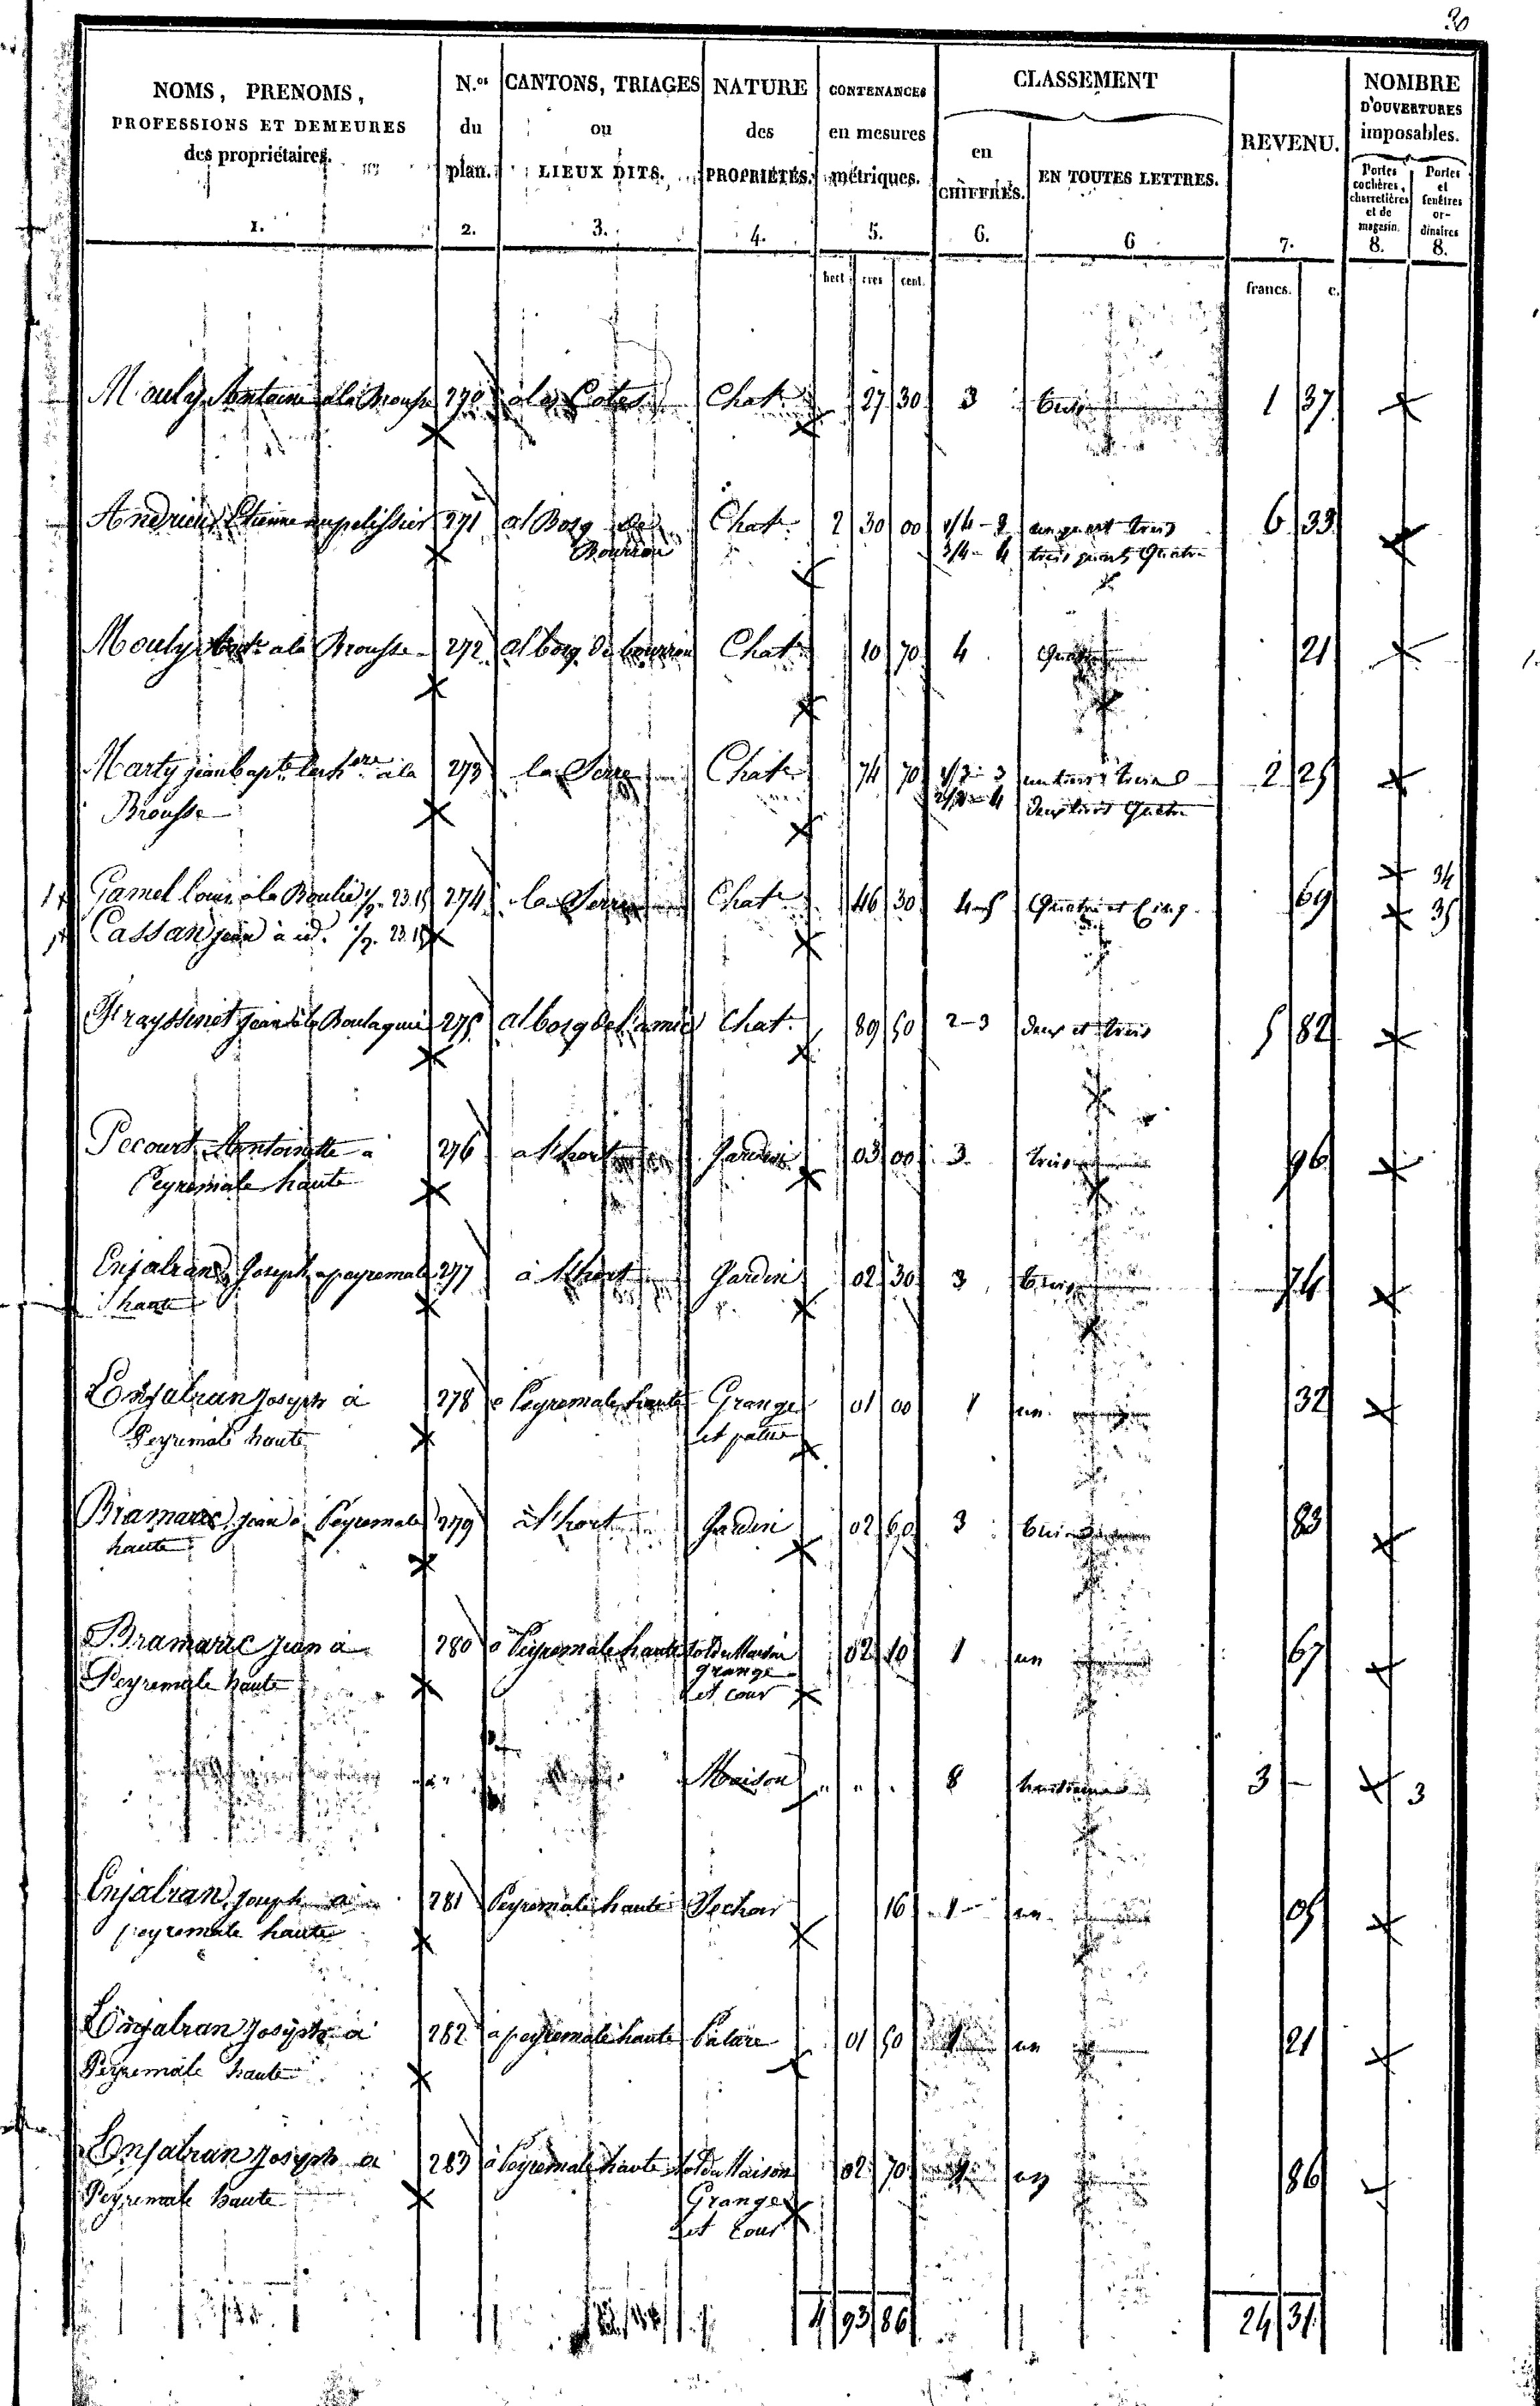 30
NOMS, PRENOMS,
PROFESSIONS ET DEMEURES
des propriétaires.
1.
N.os
du
plan.
2.
CANTONS, TRIAGES
ou
LIEUX DITS.
3.
NATURE
des
PROPRIÉTÉS.
4.
CONTENANCES
en mesures
métriques.
5.
CLASSEMENT
en
CHIFFRES.
6.
EN TOUTES LETTRES.
6
REVENU.
7.
NOMBRE
D'OUVERTURES
imposables.
Portes
cochères,
charretières
et de
magasin.
8.
Portes
et
fenêtres
or-
dinaires
8.
hect. ares cent.
francs. c.
Mouly Antoine a la Brousse 270 a las Costes Chat. 27 30 3 trois 1 37
Andrieu Etienne au pelissier 271 al Bosq de Chat. 2 30 00 1/4 - 3 un quart trois 6 33
Bourrou 3/4 - 4 trois quarts Quatre
Mouly a la Brousse 272 al bosq de bourrou Chat. 10 70 4 Quatre 21
Marty jean bapte a la 273 la Serre Chat. 74 70 1/3 - 3 un tiers trois 2 25
Brousse 2/3 - 4 deux tiers Quatre
Gamel louis a la Boulie 1/2. 23.15 274 la Serre Chat. 46 30 4-5 Quatre et Cinq 69 34
Cassan jean à id. 1/2. 23.15 35
Frayssinet jean à la Boulaquie 275 al bosq de l'amic Chat. 89 50 2-3 deux et trois 5 82
Pecourt Antoinette a 276 a l'hort Jardin 03 00 3 trois 96
Peyremale haute
Enjalran Joseph a peyremale 277 à l'hort Jardin 02 30 3 trois 74
haute
Enjalran Joseph à 278 a Peyremale haute Grange 01 00 1 un 32
Peyremale haute et patus
Bramarie jean à Peyremale 279 à l'hort Jardin 02 60 3 trois 83
haute
Bramarie Jean à 280 a Peyremale haute sol de Maison 02 10 1 un 67
Peyremale haute grange
et cour
Maison 8 huitieme 3 - 3
Enjalran Joseph a 281 Peyremale haute Sechoir 16 1 un 05
peyremale haute
Enjalran Joseph à 282 a peyremale haute Pature 01 50 1 un 21
Peyremale haute
Enjalran Joseph a 283 à Peyremale haute sol de Maison 02 70 1 un 86
Peyremale haute Grange
et Cour
4 93 86 24 31